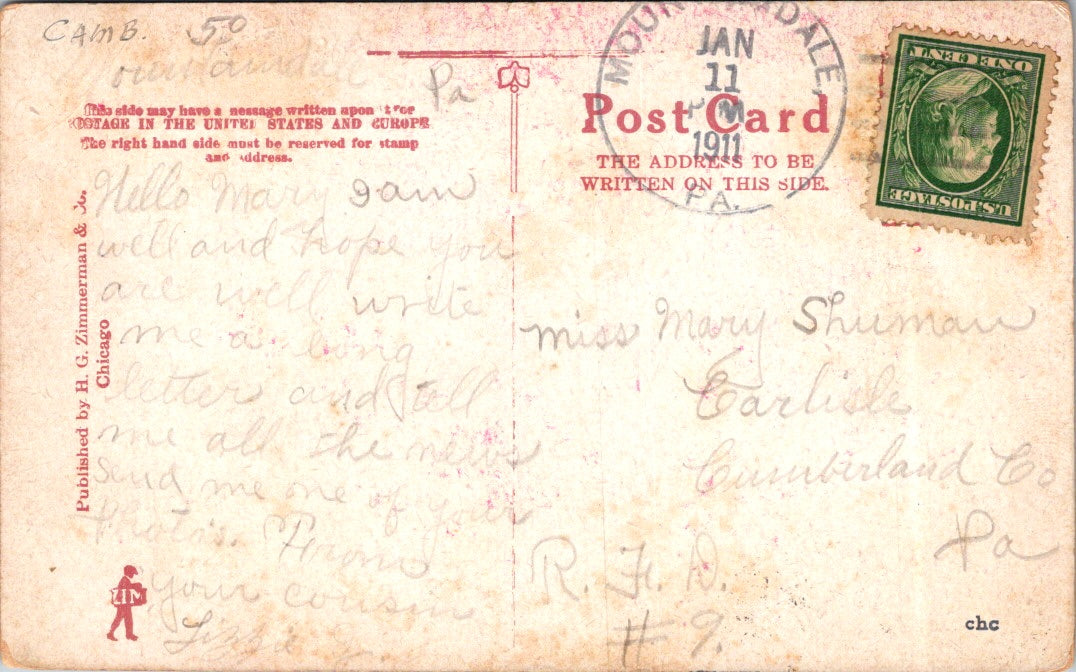 CAMB. 50
Pa
This side may have a message written upon it for
POSTAGE IN THE UNITED STATES AND EUROPE
The right hand side must be reserved for stamp
and address.
Hello Mary I am
well and hope you
are well write
me a long
letter and tell
me all the news
send me one of your
Photo's. From
your cousin
Published by H. G. Zimmerman & Co.
Chicago
ZIM
MOUNTAINDALE,
JAN
11
PM
1911
PA.
Post Card
THE ADDRESS TO BE
WRITTEN ON THIS SIDE.
U.S. POSTAGE
ONE CENT
Miss Mary Shuman
Carlisle
Cumberland Co
Pa
R. F. D.
# 9.
chc